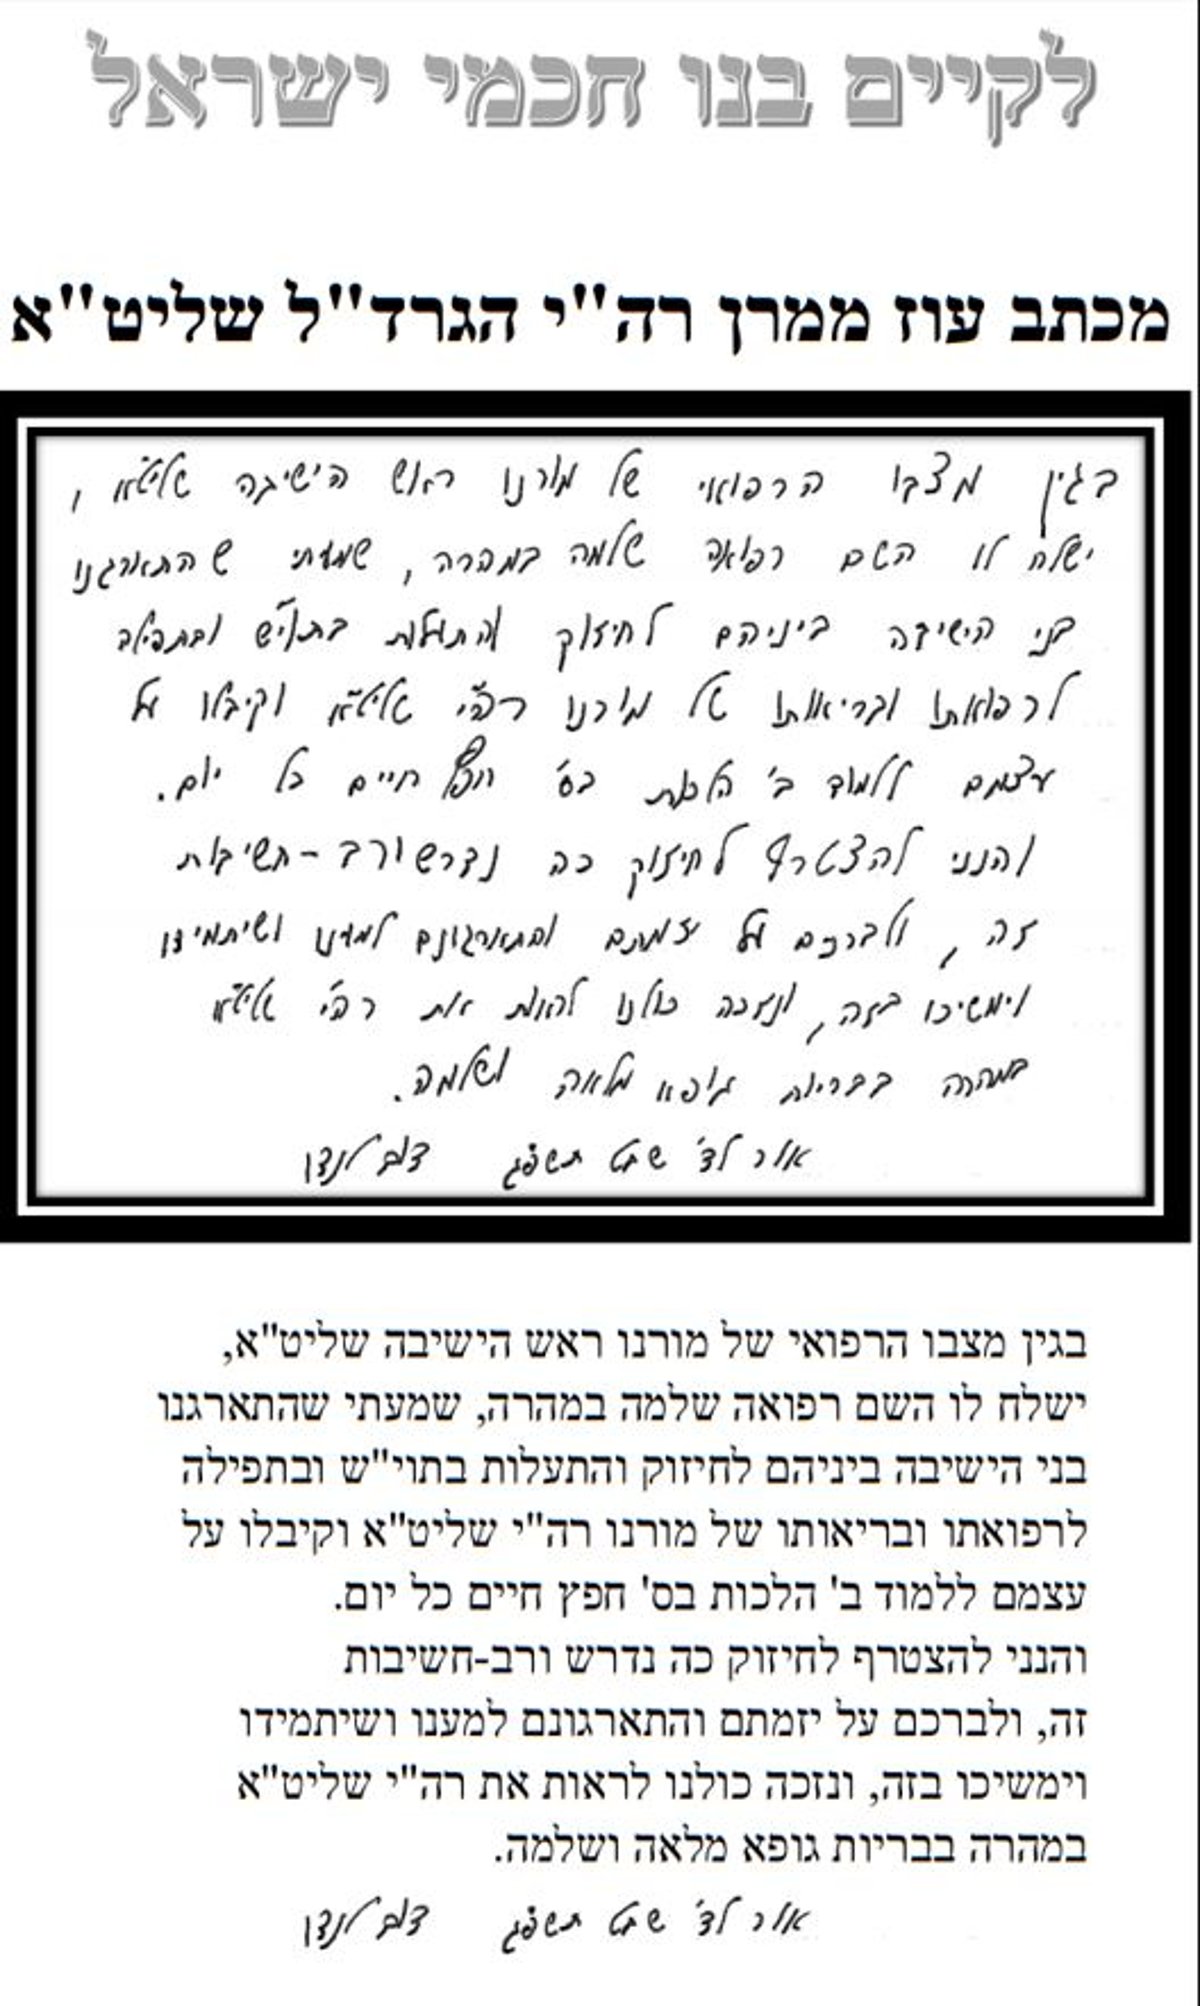 לקיים בנו חכמי ישראל
מכתב עוז ממרן רה"י הגרד"ל שליט"א
בגין מצבו הרפואי של מורנו ראש הישיבה שליט"א,
ישלח לו השם רפואה שלמה במהרה, שמעתי שהתארגנו
בני הישיבה ביניהם לחיזוק והתעלות בתוי"ש ובתפילה
לרפואתו ובריאותו של מורנו רה"י שליט"א וקיבלו על
עצמם ללמוד ב' הלכות בס' חפץ חיים כל יום.
והנני להצטרף לחיזוק כה נדרש ורב-חשיבות
זה, ולברכם על יזמתם והתארגונם למענו ושיתמידו
וימשיכו בזה, ונזכה כולנו לראות את רה"י שליט"א
במהרה בבריות גופא מלאה ושלמה.
אור לד' שבט תשפ"ג דוב לנדו
בגין מצבו הרפואי של מורנו ראש הישיבה שליט"א,
ישלח לו השם רפואה שלמה במהרה, שמעתי שהתארגנו
בני הישיבה ביניהם לחיזוק והתעלות בתוי"ש ובתפילה
לרפואתו ובריאותו של מורנו רה"י שליט"א וקיבלו על
עצמם ללמוד ב' הלכות בס' חפץ חיים כל יום.
והנני להצטרף לחיזוק כה נדרש ורב-חשיבות
זה, ולברכם על יזמתם והתארגונם למענו ושיתמידו
וימשיכו בזה, ונזכה כולנו לראות את רה"י שליט"א
במהרה בבריות גופא מלאה ושלמה.
אור לד' שבט תשפ"ג דוב לנדו